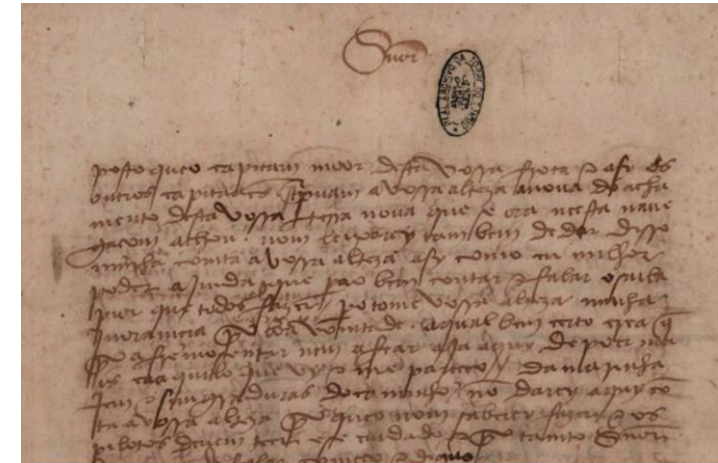 Snõr
posto queo capitam moor desta vossa frota e asy os
outros capitaães screpuam a vossa alteza a noua do acha
mento desta vossa terra noua que se ora neesta naue
gaçom achou. nom leixarey tambem de dar disso
minha comta a vossa alteza asy como eu milhor
poder ajmda que pera o bem contar e falar o saiba
pior que todos fazer. pero tome vossa alteza minha
jnoramçia por boa vomtade. aqual bem çerto crea q̃
por afremosentar nem afear aja aquy de poer ma
is caaquilo que vy e me pareçeo. da marinhajem
e simgraduras do caminho nõ darey aquy cõ
ta a vossa alteza por queo nom saberey fazer e os
pilotos deuem teer ese cuidado e por tamto Snõr